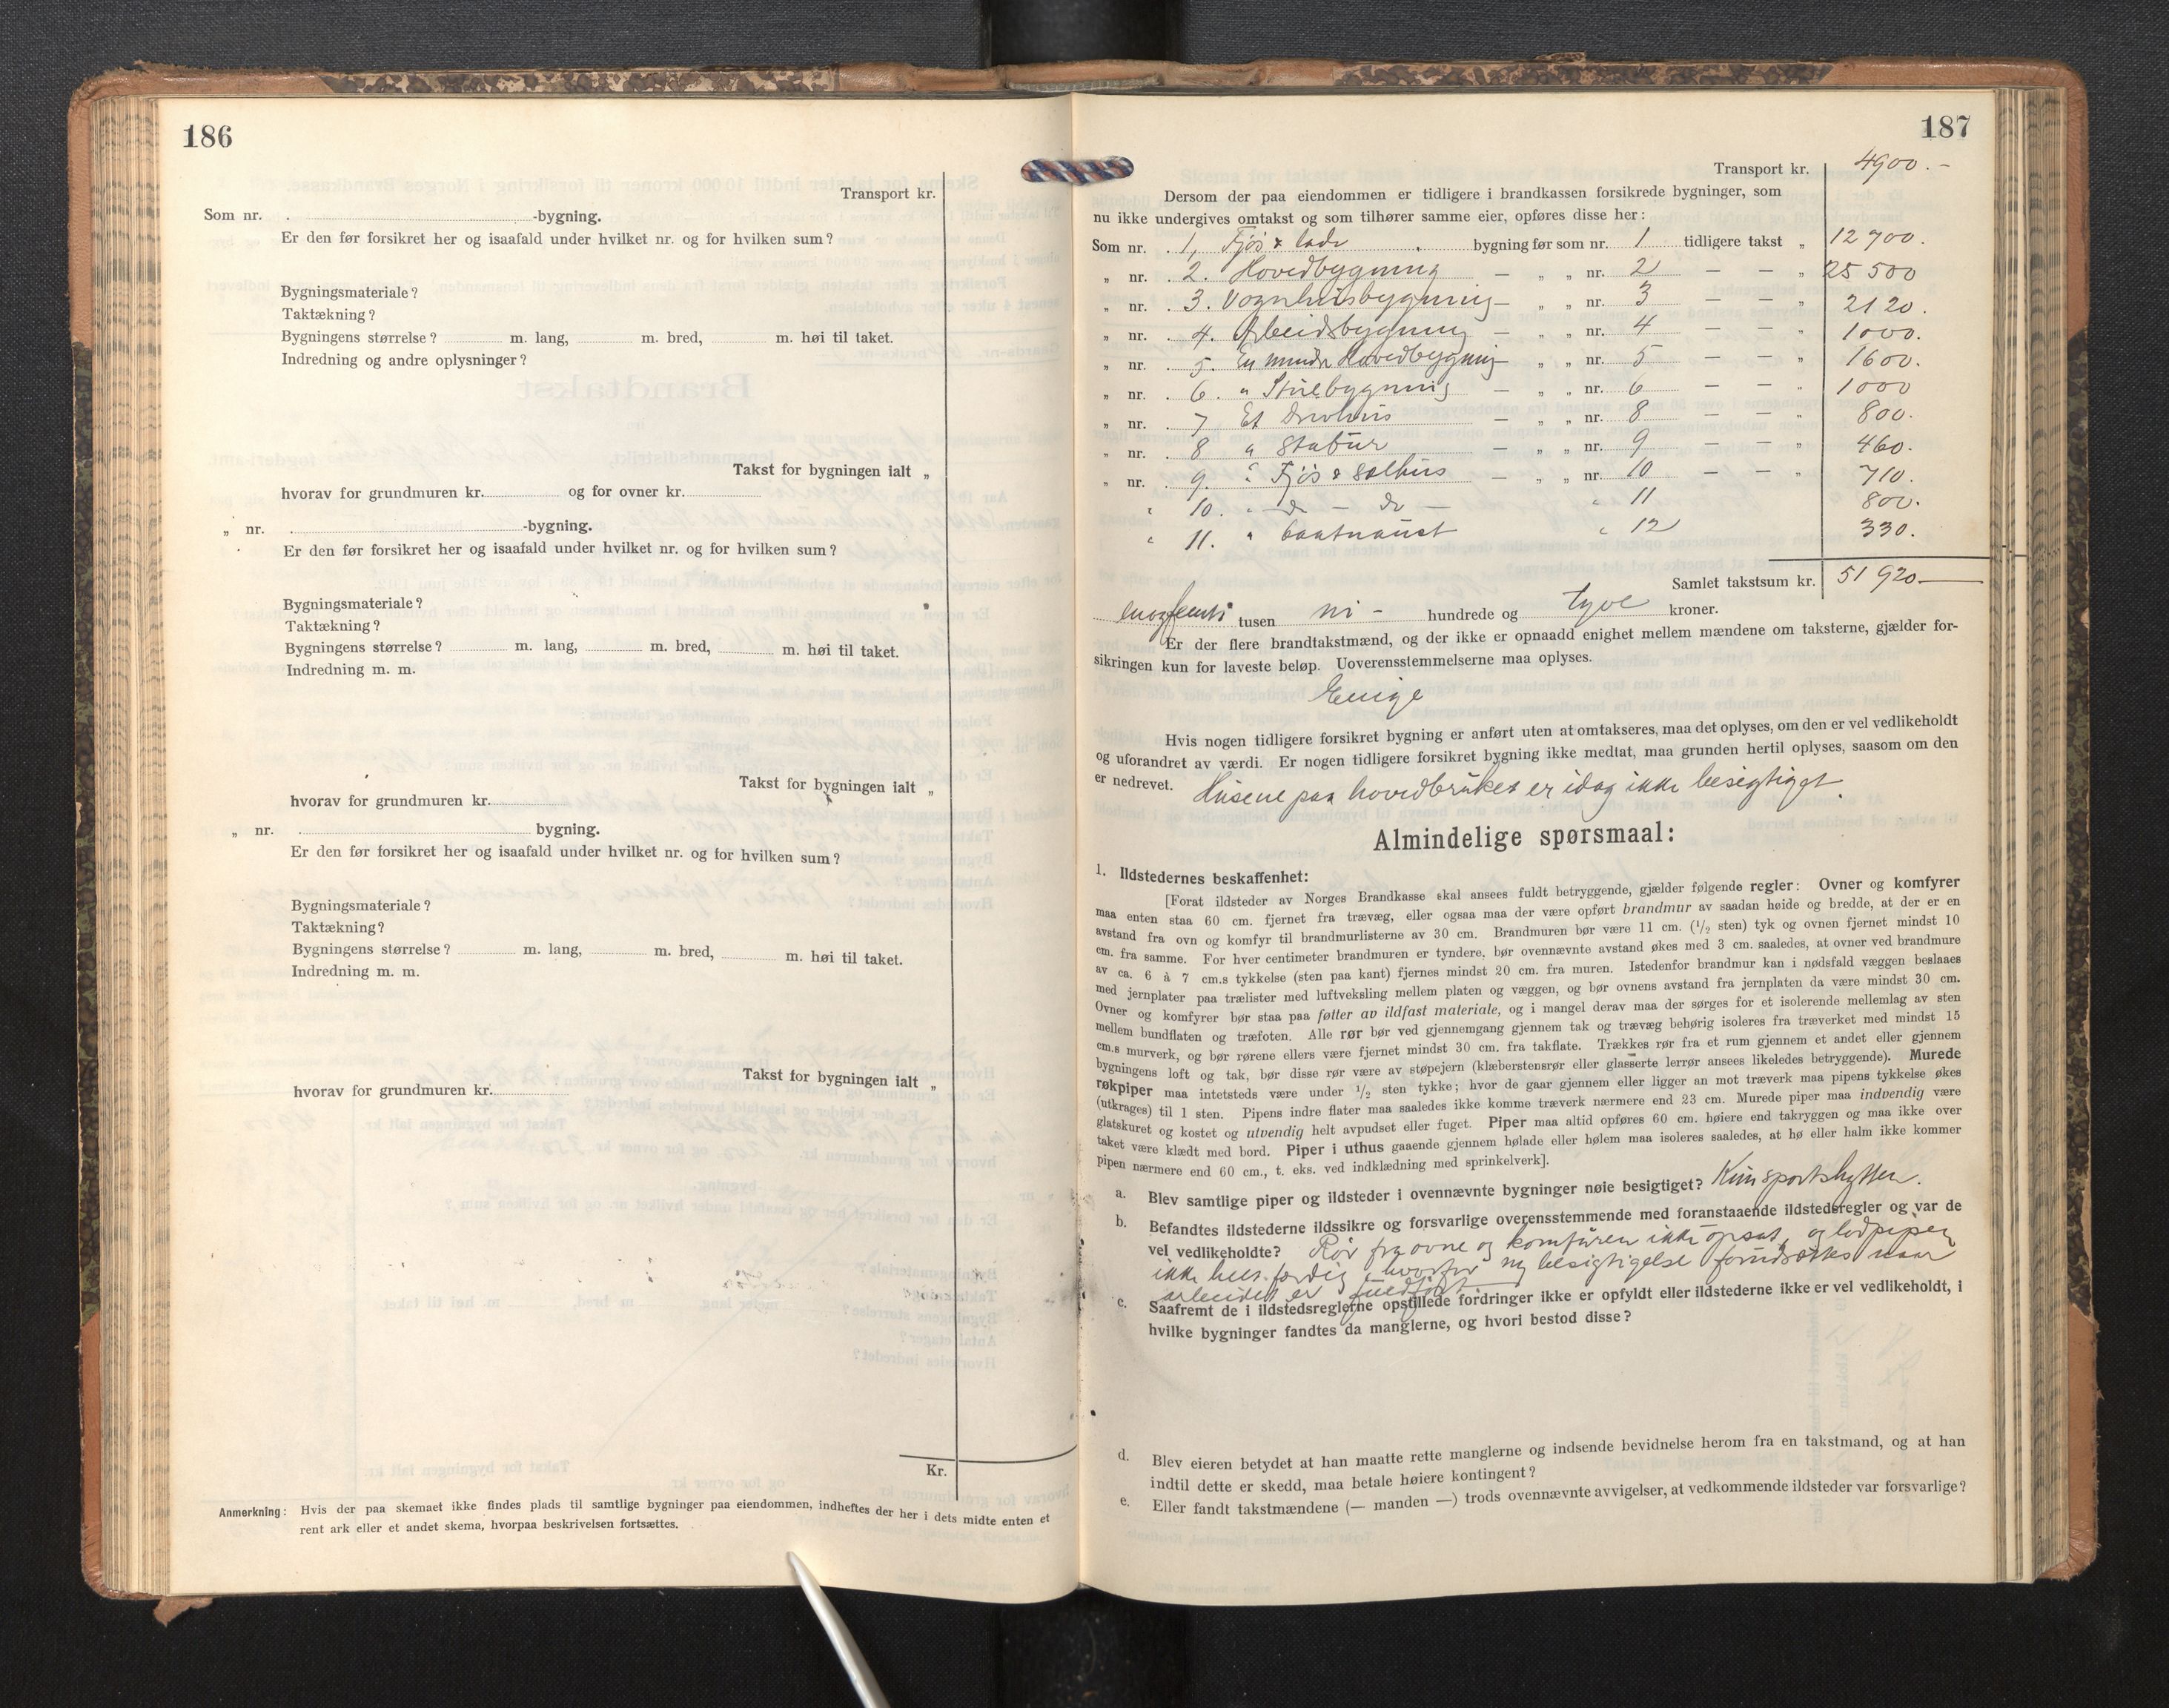 186
Transport kr.
Som nr. . -bygning.
Er den før forsikret her og isaafald under hvilket nr. og for hvilken sum?
Bygningsmateriale?
Taktækning?
Bygningens størrelse? m. lang, m. bred, m. høi til taket.
Indredning og andre oplysninger?
Takst for bygningen ialt „
hvorav for grundmuren kr. og for ovner kr.
„ nr. . -bygning.
Er den før forsikret her og isaafald under hvilket nr. og for hvilken sum?
Bygningsmateriale?
Taktækning?
Bygningens størrelse? m. lang, m. bred, m. høi til taket.
Indredning m. m.
Takst for bygningen ialt „
hvorav for grundmuren kr.
„ nr. . bygning.
Er den før forsikret her og isaafald under hvilket nr. og for hvilken sum?
Bygningsmateriale?
Taktækning?
Bygningens størrelse? m. lang, m. bred, m. høi til taket.
Indredning m. m.
Takst for bygningen ialt „
hvorav for grundmuren kr.
Kr.
Anmerkning: Hvis der paa skemaet ikke findes plads til samtlige bygninger paa eiendommen, indheftes der her i dets midte enten et
rent ark eller et andet skema, hvorpaa beskrivelsen fortsættes.
187
Transport kr. 4900.-
Dersom der paa eiendommen er tidligere i brandkassen forsikrede bygninger, som
nu ikke undergives omtakst og som tilhører samme eier, opføres disse her:
Som nr. 1, Fjøs & lade bygning før som nr. 1 tidligere takst „ 12 700.
„ nr. 2. Hovedbygning — „ „ nr. 2 — — „ 25 500
„ nr. 3. Vognhusbygning — „ „ nr. 3 — — „ 2120.
„ nr. 4. Arbeidsbygning — „ „ nr. 4 — — „ 1000.
„ nr. 5. En mindre Hovedbygning „ „ nr. 5 — — „ 1600.
„ nr. 6. „ Stuebygning — „ „ nr. 6 — — „ 1000
„ nr. 7 Et Drivhus — „ „ nr. 8 — — „ 800.
„ nr. 8 „ Stabur — „ „ nr. 9 — — „ 460.
„ nr. 9. „ Fjøs & sælhus — „ „ nr. 10 — — „ 710.
„ 10. - do - do - „ 11 800.
„ 11. „ baatnaust „ 12 330.
Samlet takstsum kr. 51 920—
enogfemti tusen ni - hundrede og tyve kroner.
Er der flere brandtakstmænd, og der ikke er opnaadd enighet mellem mændene om taksterne, gjælder for-
sikringen kun for laveste beløp. Uoverensstemmelserne maa oplyses.
Enige
Hvis nogen tidligere forsikret bygning er anført uten at omtakseres, maa det oplyses, om den er vel vedlikeholdt
og uforandret av værdi. Er nogen tidligere forsikret bygning ikke medtat, maa grunden hertil oplyses, saasom om den
er nedrevet. Husene paa hovedbruket er idag ikke besigtiget.
Almindelige spørsmaal:
1. Ildstedernes beskaffenhet:
[Forat ildsteder av Norges Brandkasse skal ansees fuldt betryggende, gjælder følgende regler: Ovner og komfyrer
maa enten staa 60 cm. fjernet fra trævæg, eller ogsaa maa der være opført brandmur av saadan høide og bredde, at der er en
avstand fra ovn og komfyr til brandmurlisterne av 30 cm. Brandmuren bør være 11 cm. (1/2 sten) tyk og ovnen fjernet mindst 10
cm. fra samme. For hver centimeter brandmuren er tyndere, bør ovennævnte avstand økes med 3 cm. saaledes, at ovner ved brandmure
av ca. 6 à 7 cm.s tykkelse (sten paa kant) fjernes mindst 20 cm. fra muren. Istedenfor brandmur kan i nødsfald væggen beslaaes
med jernplater paa trælister med luftveksling mellem platen og væggen, og bør ovnens avstand fra jernplaten da være mindst 30 cm.
Ovner og komfyrer bør staa paa føtter av ildfast materiale, og i mangel derav maa der sørges for et isolerende mellemlag av sten
mellem bundflaten og træfoten. Alle rør bør ved gjennemgang gjennem tak og trævæg behørig isoleres fra træverket med mindst 15
cm.s murverk, og bør rørene ellers være fjernet mindst 30 cm. fra takflate. Trækkes rør fra et rum gjennem et andet eller gjennem
bygningens loft og tak, bør disse rør være av støpejern (klæberstensrør eller glasserte lerrør ansees likeledes betryggende). Murede
røkpiper maa intetsteds være under 1/2 sten tykke; hvor de gaar gjennem eller ligger an mot træverk maa pipens tykkelse økes
(utkrages) til 1 sten. Pipens indre flater maa saaledes ikke komme træverk nærmere end 23 cm. Murede piper maa indvendig være
glatskuret og kostet og utvendig helt avpudset eller fuget. Piper maa altid opføres 60 cm. høiere end takryggen og maa ikke over
taket være klædt med bord. Piper i uthus gaaende gjennem hølade eller hølem maa isoleres saaledes, at hø eller halm ikke kommer
pipen nærmere end 60 cm., t. eks. ved indklædning med sprinkelverk].
a. Blev samtlige piper og ildsteder i ovennævnte bygninger nøie besigtiget? Kun sportshytten.
b. Befandtes ildstederne ildssikre og forsvarlige overensstemmende med foranstaaende ildstedsregler og var de
vel vedlikeholdte? Rør fra ovne og komfuren ikke opsat, og
ikke helt færdig, hvorfor ny besigtigelse naar
arbeidet er fuldført.
c. Saafremt de i ildstedsreglerne opstillede fordringer ikke er opfyldt eller ildstederne ikke er vel vedlikeholdt, i
hvilke bygninger fandtes da manglerne, og hvori bestod disse?
d. Blev eieren betydet at han maatte rette manglerne og indsende bevidnelse herom fra en takstmand, og at han
indtil dette er skedd, maa betale høiere kontingent?
e. Eller fandt takstmændene (— manden —) trods ovennævnte avvigelser, at vedkommende ildsteder var forsvarlige?